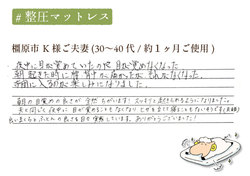 #整圧マットレス
橿原市 K 様ご夫妻 (30〜40代 / 約1ヶ月ご使用)
夜中に目が覚めていたのが 目が覚めなくなった
朝起きた時に 背中が痛かったが それがなくなった
布団に入るのが楽しみになりました。
朝の目覚めの良さが全然ちがいます! スッキリと起きられるようになりました。
夫と同じく夜中に目が覚めることもなくなり
ありがとうございます!